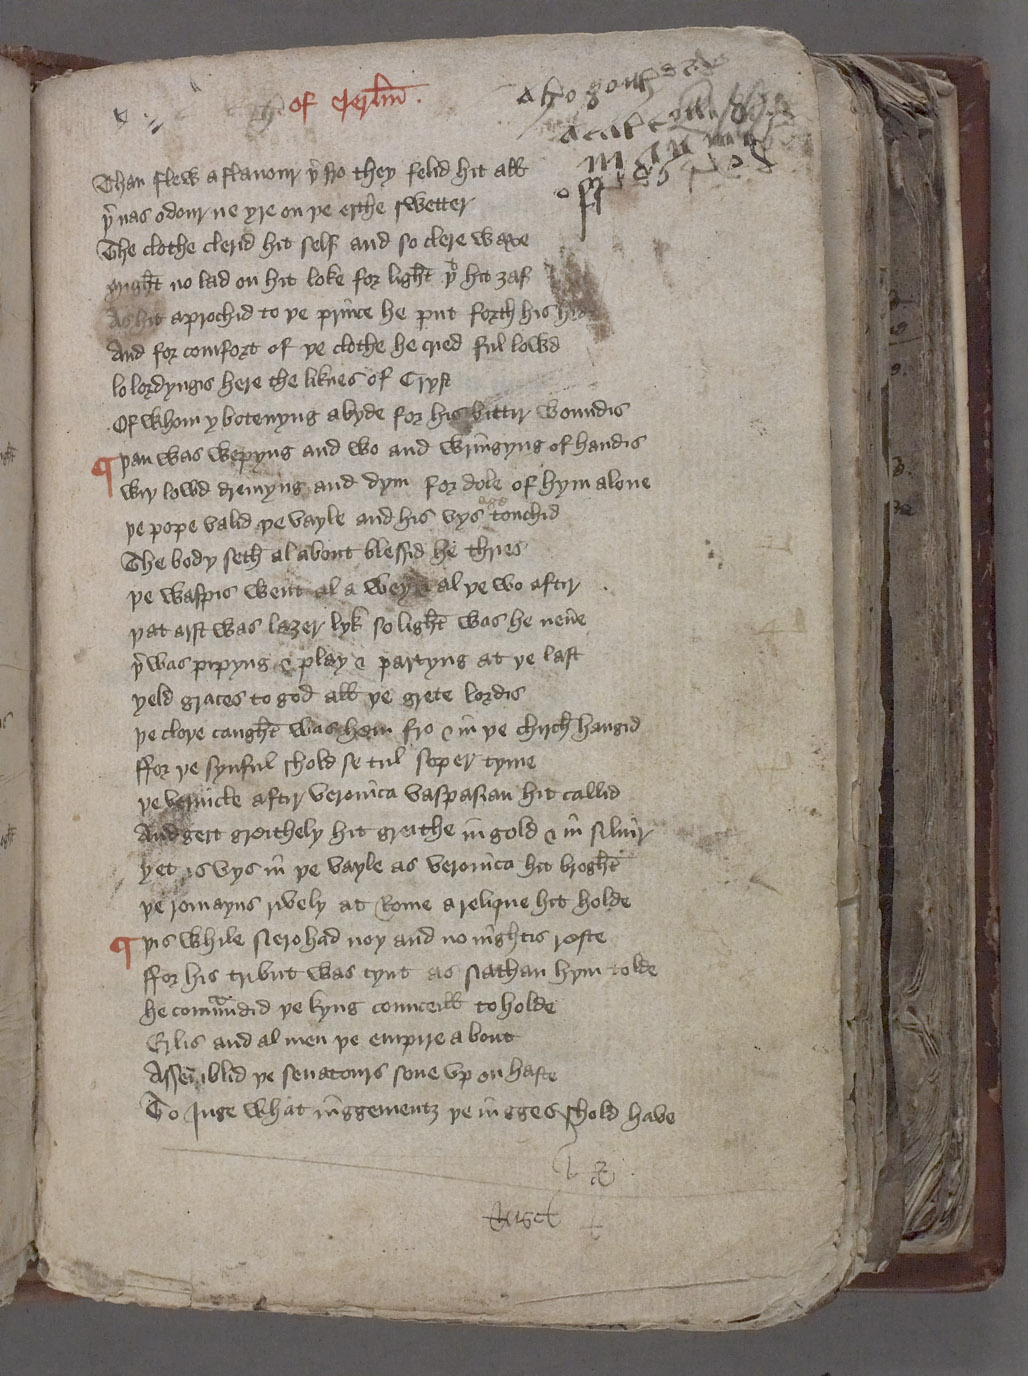 of Jerlm̄ .
Than flew a flavour þ̉ fro they felid hit all
þ̉ nas odour ne yre on þe erthe swetter
The clothe clerid hit self and so clere waxe
Might no lad on hit loke for light þͭ hit ȝaf
As hit aprochid to þe prince he put forth his
And for comfort of þe clothe he cried ful lowd
lo lordyngis here the liknes of Cryst
Of whom y botenyng abyde for his bittir woundis
¶ þan was wepyng and wo and wringyng of handis
wiþ lowd dremyng and dym for dole of hym alone
þe pope valid þe vayle and his vys touchid
The body seth al about blessid he thries
þe waspis went al a wey & al þe wo aftir
þat arst was lazer lyk so light was he nev̉e
þ̉ was pipyng & play & partyng at þe last
yeld graces to god all þe grete lordis
þe cloþe caught was hem fro & in þe chirch hangid
ffor þe synful shold se tul soper tyme
þe vernicle aftir veronica vaspasian hit callid
And gert greithely hit greithe in gold & in silṽir
Yet is vys in þe vayle as veronica hit broght
þe romayns rively at Rome a relique hit holde
¶ þis while Nero had noy and no nightis reste
ffor his tribut was tynt as Nathan hym tolde
he com̄ndid þe kyng counceill to holde
Erlis and al men þe empire about
Assemblid þe senatours sone vp on haste
To Juge what juggementz þe jugges shold have